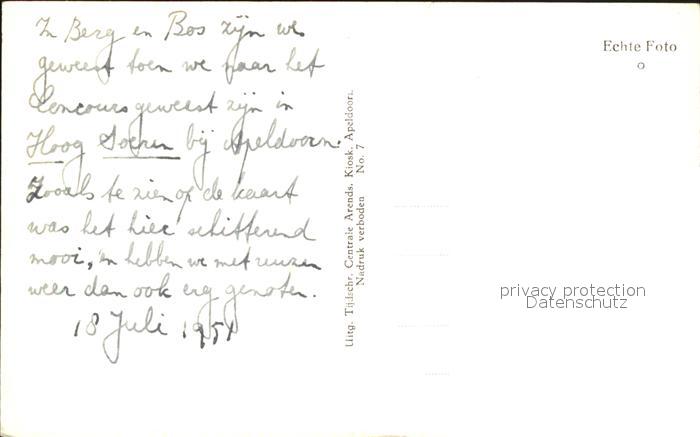 In Berg en Bos zijn we
geweest toen we naar het
Concours geweest zijn in
Hoog Soeren bij Apeldoorn.
Zooals te zien op de kaart
was het hier schitterend
mooi, en hebben we met
weer dan ook erg genoten.
18 Juli 1951
Uitg. Tijdschr. Centrale Arends. Kiosk. Apeldoorn.
Nadruk verboden No. 7
Echte Foto
privacy protection
Datenschutz